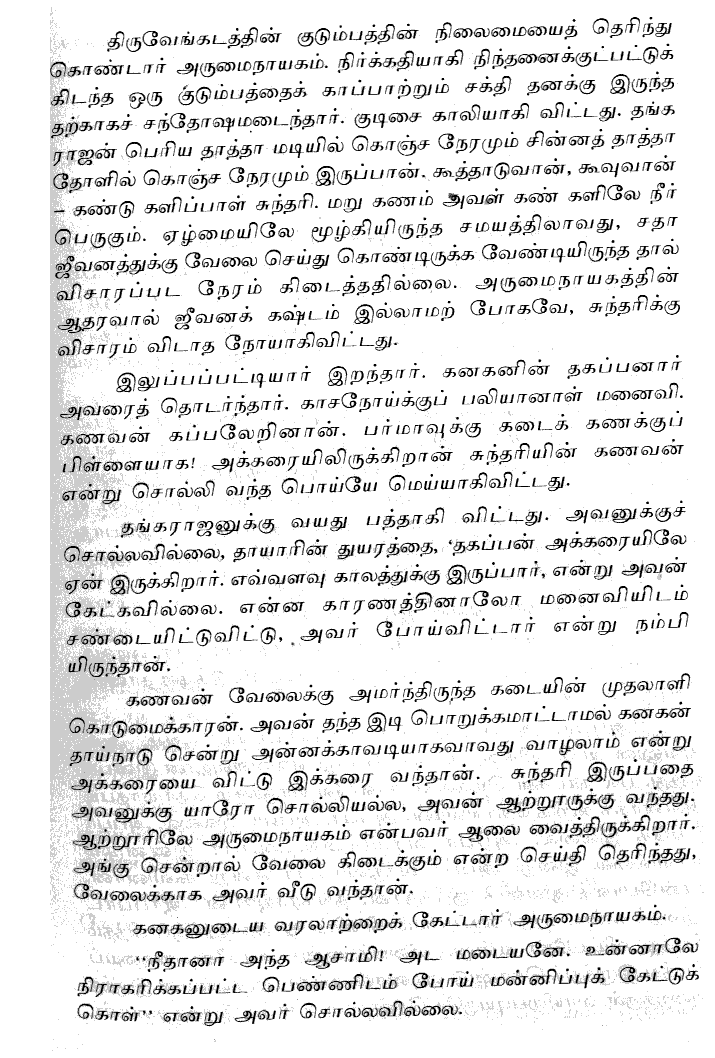 திருவேங்கடத்தின் குடும்பத்தின் நிலைமையைத் தெரிந்து
கொண்டார் அருமைநாயகம். நிர்க்கதியாகி நிந்தனைக்குட்பட்டுக்
கிடந்த ஒரு குடும்பத்தைக் காப்பாற்றும் சக்தி தனக்கு இருந்த
தற்காகச் சந்தோஷமடைந்தார். குடிசை காலியாகி விட்டது. தங்க
ராஜன் பெரிய தாத்தா மடியில் கொஞ்ச நேரமும் சின்னத் தாத்தா
தோளில் கொஞ்ச நேரமும் இருப்பான். கூத்தாடுவான், கூவுவான்
– கண்டு களிப்பாள் சுந்தரி. மறு கணம் அவள் கண் களிலே நீர்
பெருகும். ஏழ்மையிலே மூழ்கியிருந்த சமயத்திலாவது, சதா
ஜீவனத்துக்கு வேலை செய்து கொண்டிருக்க வேண்டியிருந்த தால்
விசாரப்பட நேரம் கிடைத்ததில்லை. அருமைநாயகத்தின்
ஆதரவால் ஜீவனக் கஷ்டம் இல்லாமற் போகவே, சுந்தரிக்கு
விசாரம் விடாத நோயாகிவிட்டது.
இலுப்பப்பட்டியார் இறந்தார். கனகனின் தகப்பனார்
அவரைத் தொடர்ந்தார். காசநோய்க்குப் பலியானாள் மனைவி.
கணவன் கப்பலேறினான். பர்மாவுக்கு கடைக் கணக்குப்
பிள்ளையாக! அக்கரையிலிருக்கிறான் சுந்தரியின் கணவன்
என்று சொல்லி வந்த பொய்யே மெய்யாகிவிட்டது.
தங்கராஜனுக்கு வயது பத்தாகி விட்டது. அவனுக்குச்
சொல்லவில்லை, தாயாரின் துயரத்தை, ‘தகப்பன் அக்கரையிலே
ஏன் இருக்கிறார். எவ்வளவு காலத்துக்கு இருப்பார், என்று அவன்
கேட்கவில்லை. என்ன காரணத்தினாலோ மனைவியிடம்
சண்டையிட்டுவிட்டு, அவர் போய்விட்டார் என்று நம்பி
யிருந்தான்.
கணவன் வேலைக்கு அமர்ந்திருந்த கடையின் முதலாளி
கொடுமைக்காரன். அவன் தந்த இடி பொறுக்கமாட்டாமல் கனகன்
தாய்நாடு சென்று அன்னக்காவடியாகவாவது வாழலாம் என்று
அக்கரையை விட்டு இக்கரை வந்தான். சுந்தரி இருப்பதை
அவனுக்கு யாரோ சொல்லியல்ல, அவன் ஆற்றூருக்கு வந்தது.
ஆற்றூரிலே அருமைநாயகம் என்பவர் ஆலை வைத்திருக்கிறார்.
அங்கு சென்றால் வேலை கிடைக்கும் என்ற செய்தி தெரிந்தது,
வேலைக்காக அவர் வீடு வந்தான்.
கனகனுடைய வரலாற்றைக் கேட்டார் அருமைநாயகம்.
“நீதானா அந்த ஆசாமி! அட மடையனே. உன்னாலே
நிராகரிக்கப்பட்ட பெண்ணிடம் போய் மன்னிப்புக் கேட்டுக்
கொள்” என்று அவர் சொல்லவில்லை.